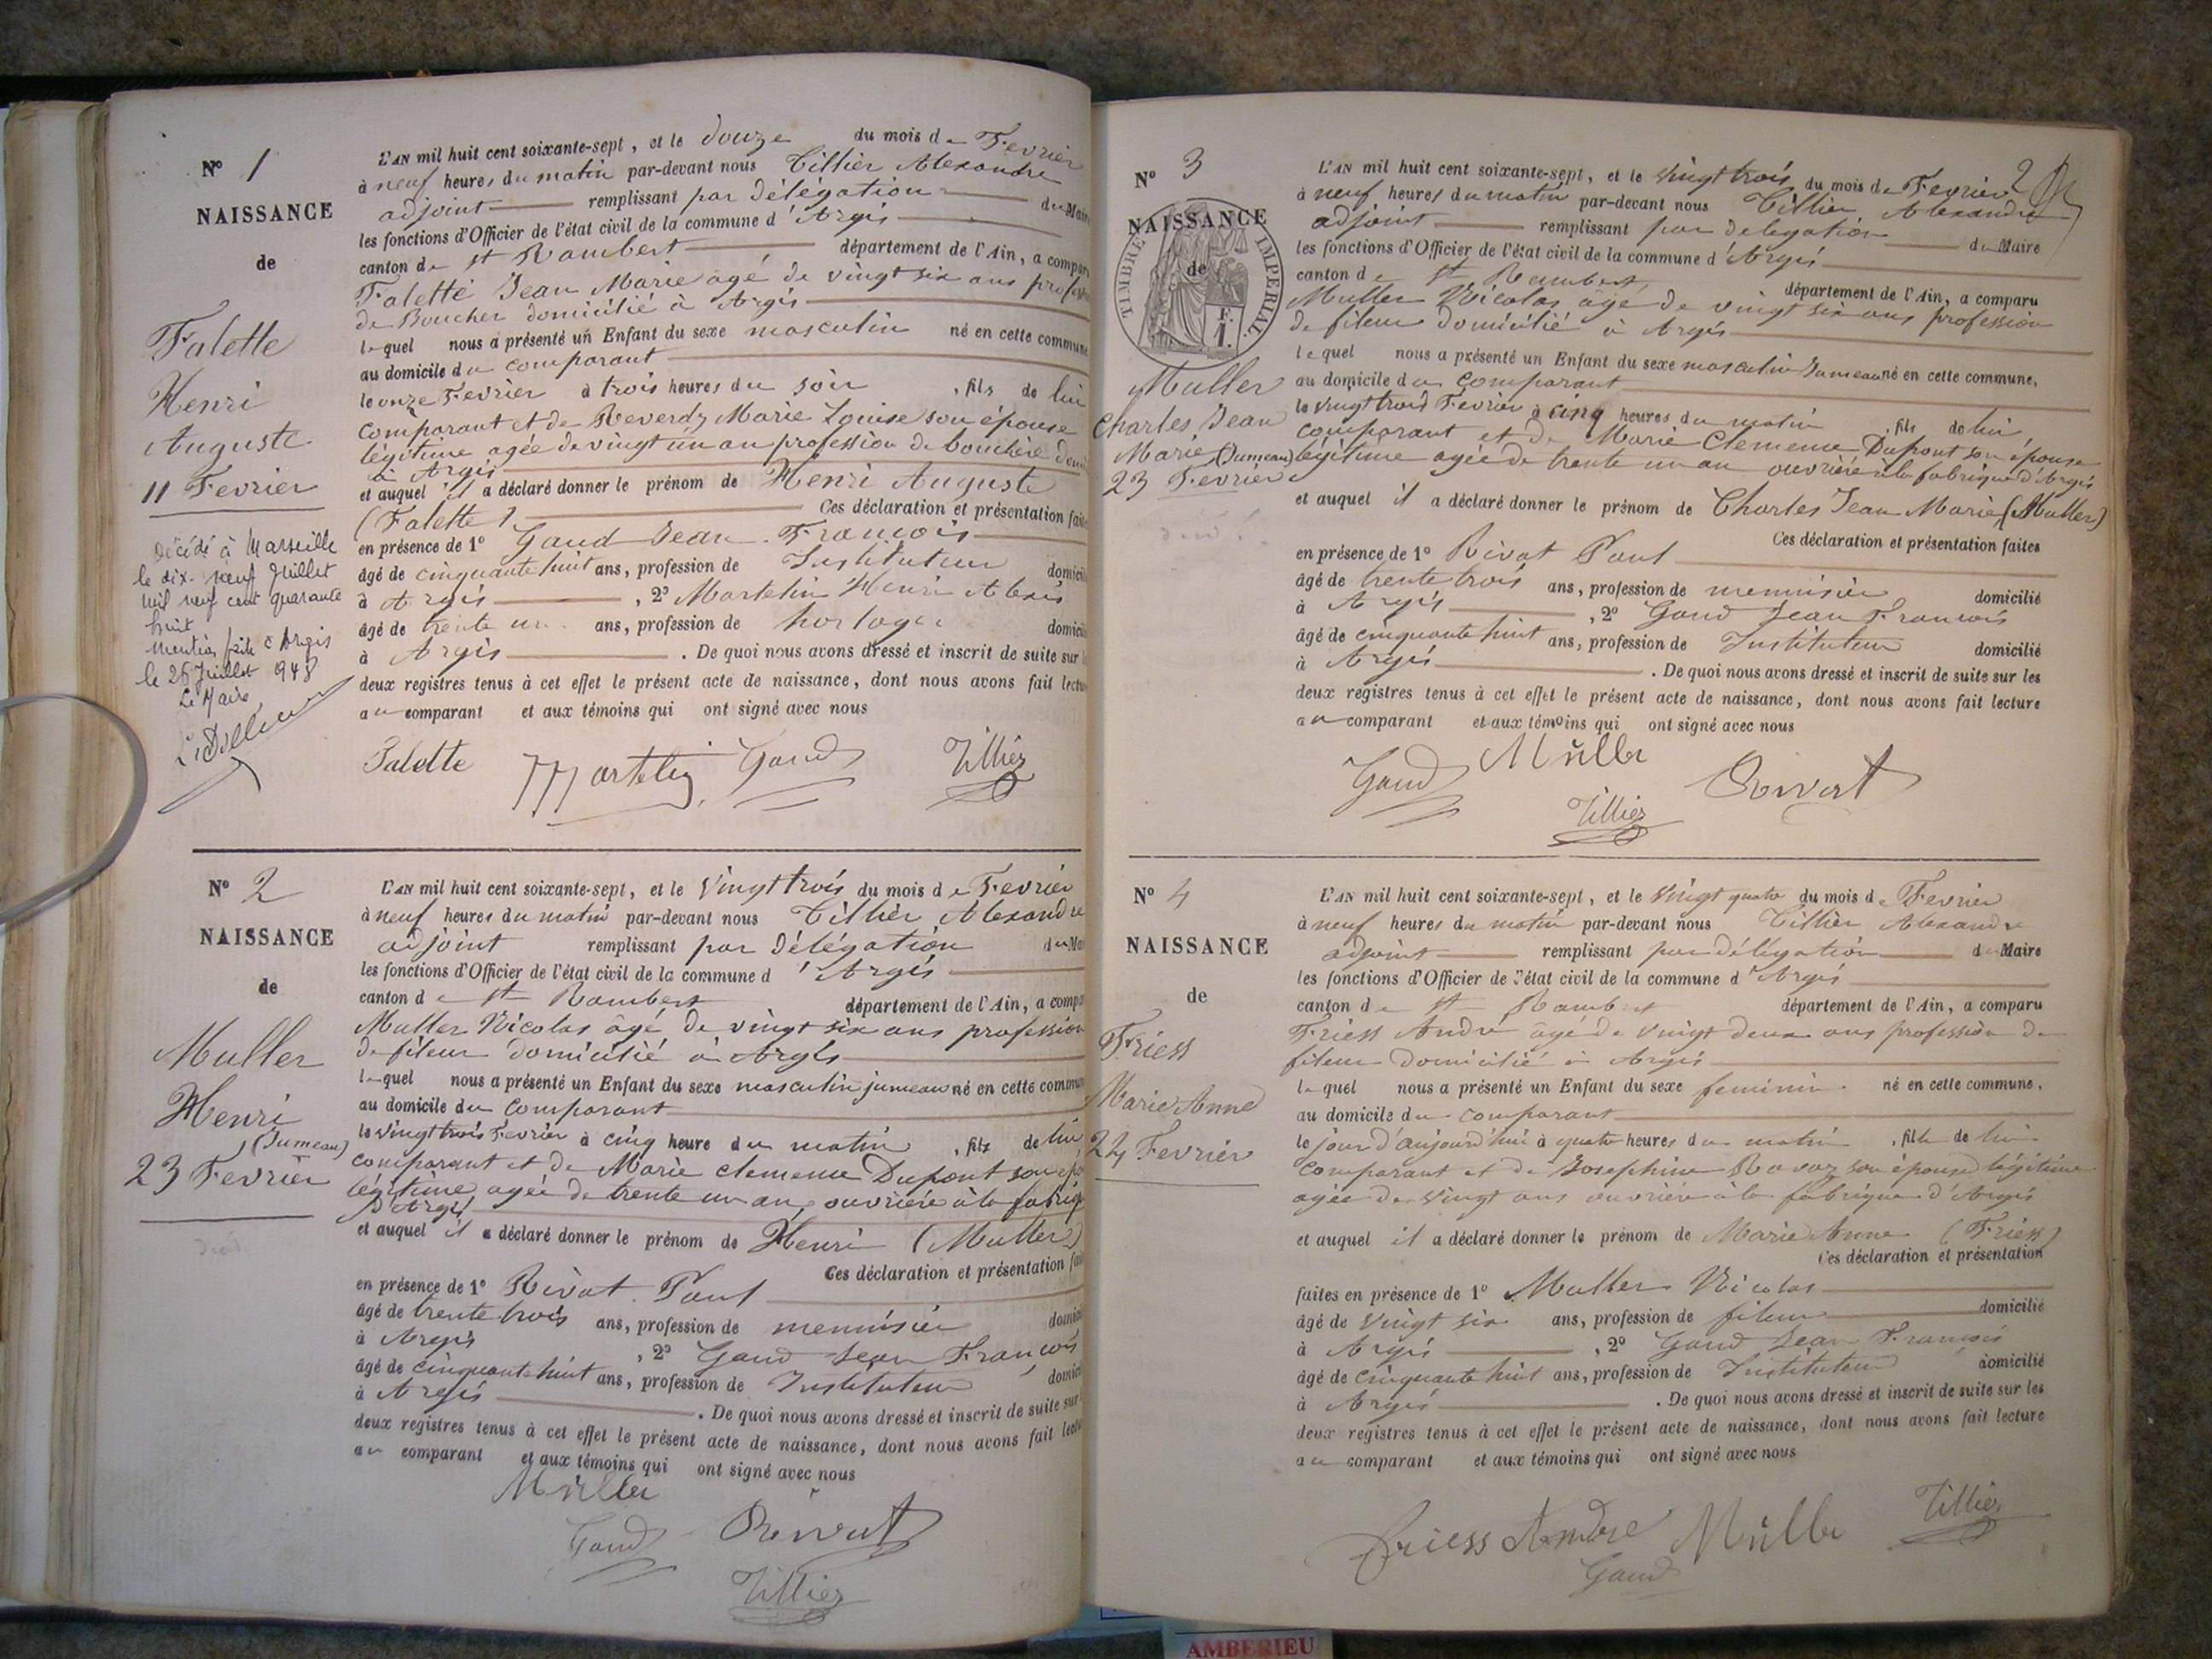 N° 1
NAISSANCE
de
Falette
Henri
Auguste
11 Fevrier
Décédé à Marseille
le dix-neuf Juillet
mil neuf cent quarante
huit
Mention faite à Argis
le 25 Juillet 1948
Le Maire
L'AN mil huit cent soixante-sept, et le douze du mois de Fevrier
à neuf heures du matin par-devant nous Tillier Alexandre
adjoint remplissant par délégation du Maire
les fonctions d'Officier de l'état civil de la commune d'Argis
canton de St Rambert département de l'Ain, a compar
Falette Jean Marie agé de vingt six ans profess
de Boucher domicilié à Argis
lequel nous a présenté un Enfant du sexe masculin né en cette commune
au domicile du comparant
le onze Fevrier à trois heures du soir, fils de lui
comparant et de Reverdy Marie Louise son épouse
légitime agée de vingt un an profession de bouchère domi
à Argis
et auquel il a déclaré donner le prénom de Henri Auguste
(Falette) Ces déclaration et présentation faites
en présence de 1° Gaud Jean François
âgé de cinquante huit ans, profession de Instituteur domicil
à Argis, 2° Martelin Henri Alexis
âgé de trente un ans, profession de horloger domicil
à Argis. De quoi nous avons dressé et inscrit de suite sur l
deux registres tenus à cet effet le présent acte de naissance, dont nous avons fait lectu
au comparant et aux témoins qui ont signé avec nous
Falette Martelin Gaud Tillier
N° 2
NAISSANCE
de
Muller
Henri
(Jumeau)
23 Fevrier
L'AN mil huit cent soixante-sept, et le vingt trois du mois de Fevrier
à neuf heures du matin par-devant nous Tillier Alexandre
adjoint remplissant par délégation du Mai
les fonctions d'Officier de l'état civil de la commune d'Argis
canton de St Rambert département de l'Ain, a compa
Muller Nicolas âgé de vingt six ans profession
de fileur domicilié à Argis
lequel nous a présenté un Enfant du sexe masculin jumeau né en cette commun
au domicile du comparant
le vingt trois Fevrier à cinq heure du matin, fils de lui
comparant et de Marie Clemence Dupont son épo
légitime agée de trente un an, ouvrière à la fabriq
d'Argis
et auquel il a déclaré donner le prénom de Henri (Muller)
Ces déclaration et présentation fai
en présence de 1° Rivat Paul
âgé de trente trois ans, profession de menuisier domici
à Argis, 2° Gaud Jean François
âgé de cinquante huit ans, profession de Instituteur domici
à Argis. De quoi nous avons dressé et inscrit de suite sur
deux registres tenus à cet effet le présent acte de naissance, dont nous avons fait lectu
au comparant et aux témoins qui ont signé avec nous
Müller
Gaud Rivat
Tillier
2
N° 3
NAISSANCE
de
TIMBRE IMPERIAL
F.
1.
Muller
Charles Jean
Marie (Jumeau)
23 Fevrier
L'AN mil huit cent soixante-sept, et le vingt trois du mois de Fevrier
à neuf heures du matin par-devant nous Tillier Alexandre
adjoint remplissant par delegation du Maire
les fonctions d'Officier de l'état civil de la commune d'Argis
canton de St Rambert département de l'Ain, a comparu
Muller Nicolas âgé de vingt six ans profession
de fileur domicilié à Argis
lequel nous a présenté un Enfant du sexe masculin Jumeau né en cette commune,
au domicile du comparant
le vingt trois Fevrier à cinq heures du matin, fils de lui
comparant et de Marie Clemence Dupont son épouse
légitime agée de trente un an ouvrière à la fabrique d'Argis
et auquel il a déclaré donner le prénom de Charles Jean Marie (Muller)
Ces déclaration et présentation faites
en présence de 1° Rivat Paul
âgé de trente trois ans, profession de menuisier domicilié
à Argis, 2° Gaud Jean Francois
âgé de cinquante huit ans, profession de Instituteur domicilié
à Argis. De quoi nous avons dressé et inscrit de suite sur les
deux registres tenus à cet effet le présent acte de naissance, dont nous avons fait lecture
au comparant et aux témoins qui ont signé avec nous
Gaud Müller Rivat
Tillier
N° 4
NAISSANCE
de
Friess
Marie Anne
24 Fevrier
L'AN mil huit cent soixante-sept, et le vingt quatre du mois de Fevrier
à neuf heures du matin par-devant nous Tillier Alexandre
adjoint remplissant par délégation du Maire
les fonctions d'Officier de l'état civil de la commune d'Argis
canton de St Rambert département de l'Ain, a comparu
Friess André âgé de vingt deux ans profession de
fileur domicilié à Argis
lequel nous a présenté un Enfant du sexe feminin né en cette commune,
au domicile du comparant
le jour d'aujourd'hui à quatre heures du matin, fille de lui
comparant et de Josephine Ravoz son épouse légitime
agée de vingt ans ouvrière à la fabrique d'Argis
et auquel il a déclaré donner le prénom de Marie Anne (Friess)
Ces déclaration et présentation
faites en présence de 1° Muller Nicolas
âgé de vingt six ans, profession de fileur domicilié
à Argis, 2° Gaud Jean François
âgé de cinquante huit ans, profession de Instituteur domicilié
à Argis. De quoi nous avons dressé et inscrit de suite sur les
deux registres tenus à cet effet le présent acte de naissance, dont nous avons fait lecture
au comparant et aux témoins qui ont signé avec nous
Friess Andre Müller Tillier
Gaud
AMBERIEU